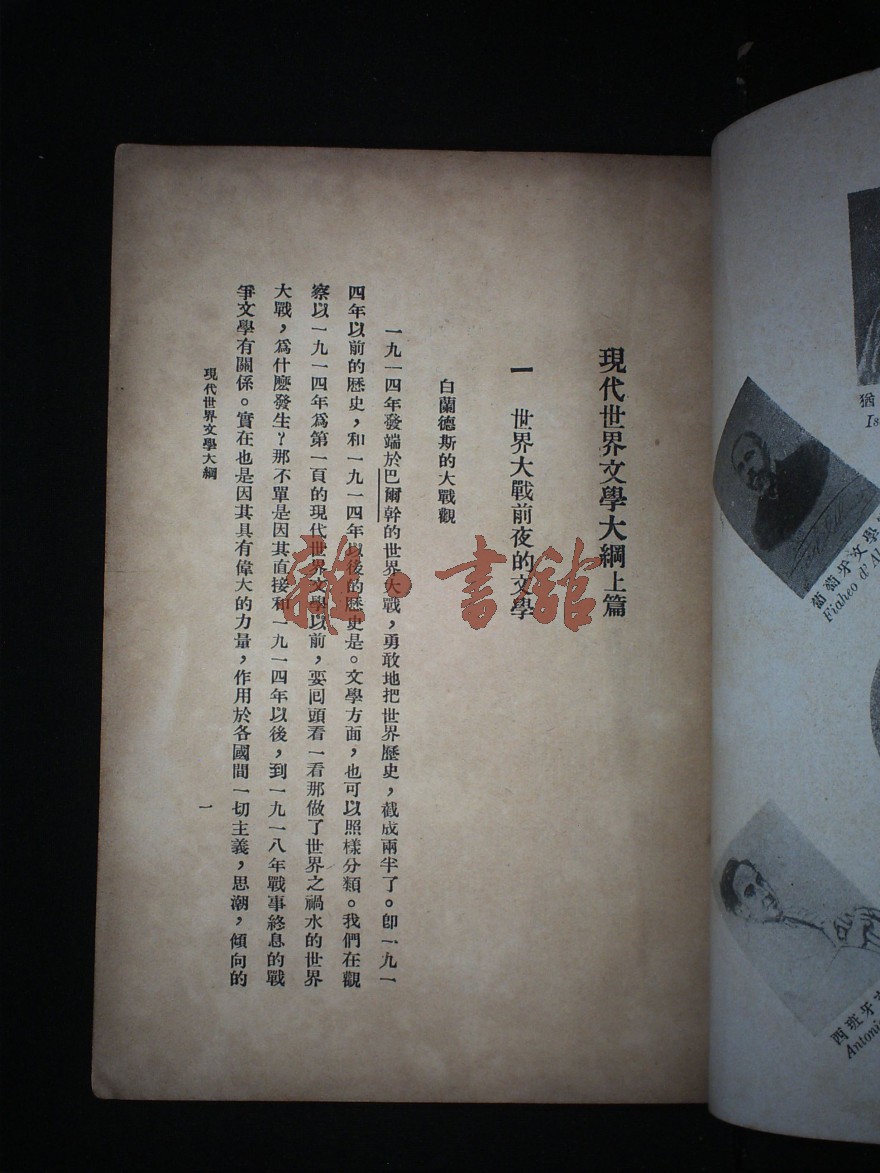 現代世界文學大綱上篇
一　世界大戰前夜的文學
白蘭德斯的大戰觀
一九一四年發端於巴爾幹的世界大戰，勇敢地把世界歷史，截成兩半了。卽一九一
四年以前的歷史，和一九一四年以後的歷史是。文學方面，也可以照樣分類。我們在觀
察以一九一四年爲第一頁的現代世界文學以前，要囘頭看一看那做了世界之禍水的世界
大戰，爲什麼發生？那不單是因其直接和一九一四年以後，到一九一八年戰事終息的戰
爭文學有關係。實在也是因其具有偉大的力量，作用於各國間一切主義，思潮，傾向的
現代世界文學大綱
一
雜·書館
猶
葡萄牙文學
Fiaheo d' Al
西班牙
Antoni